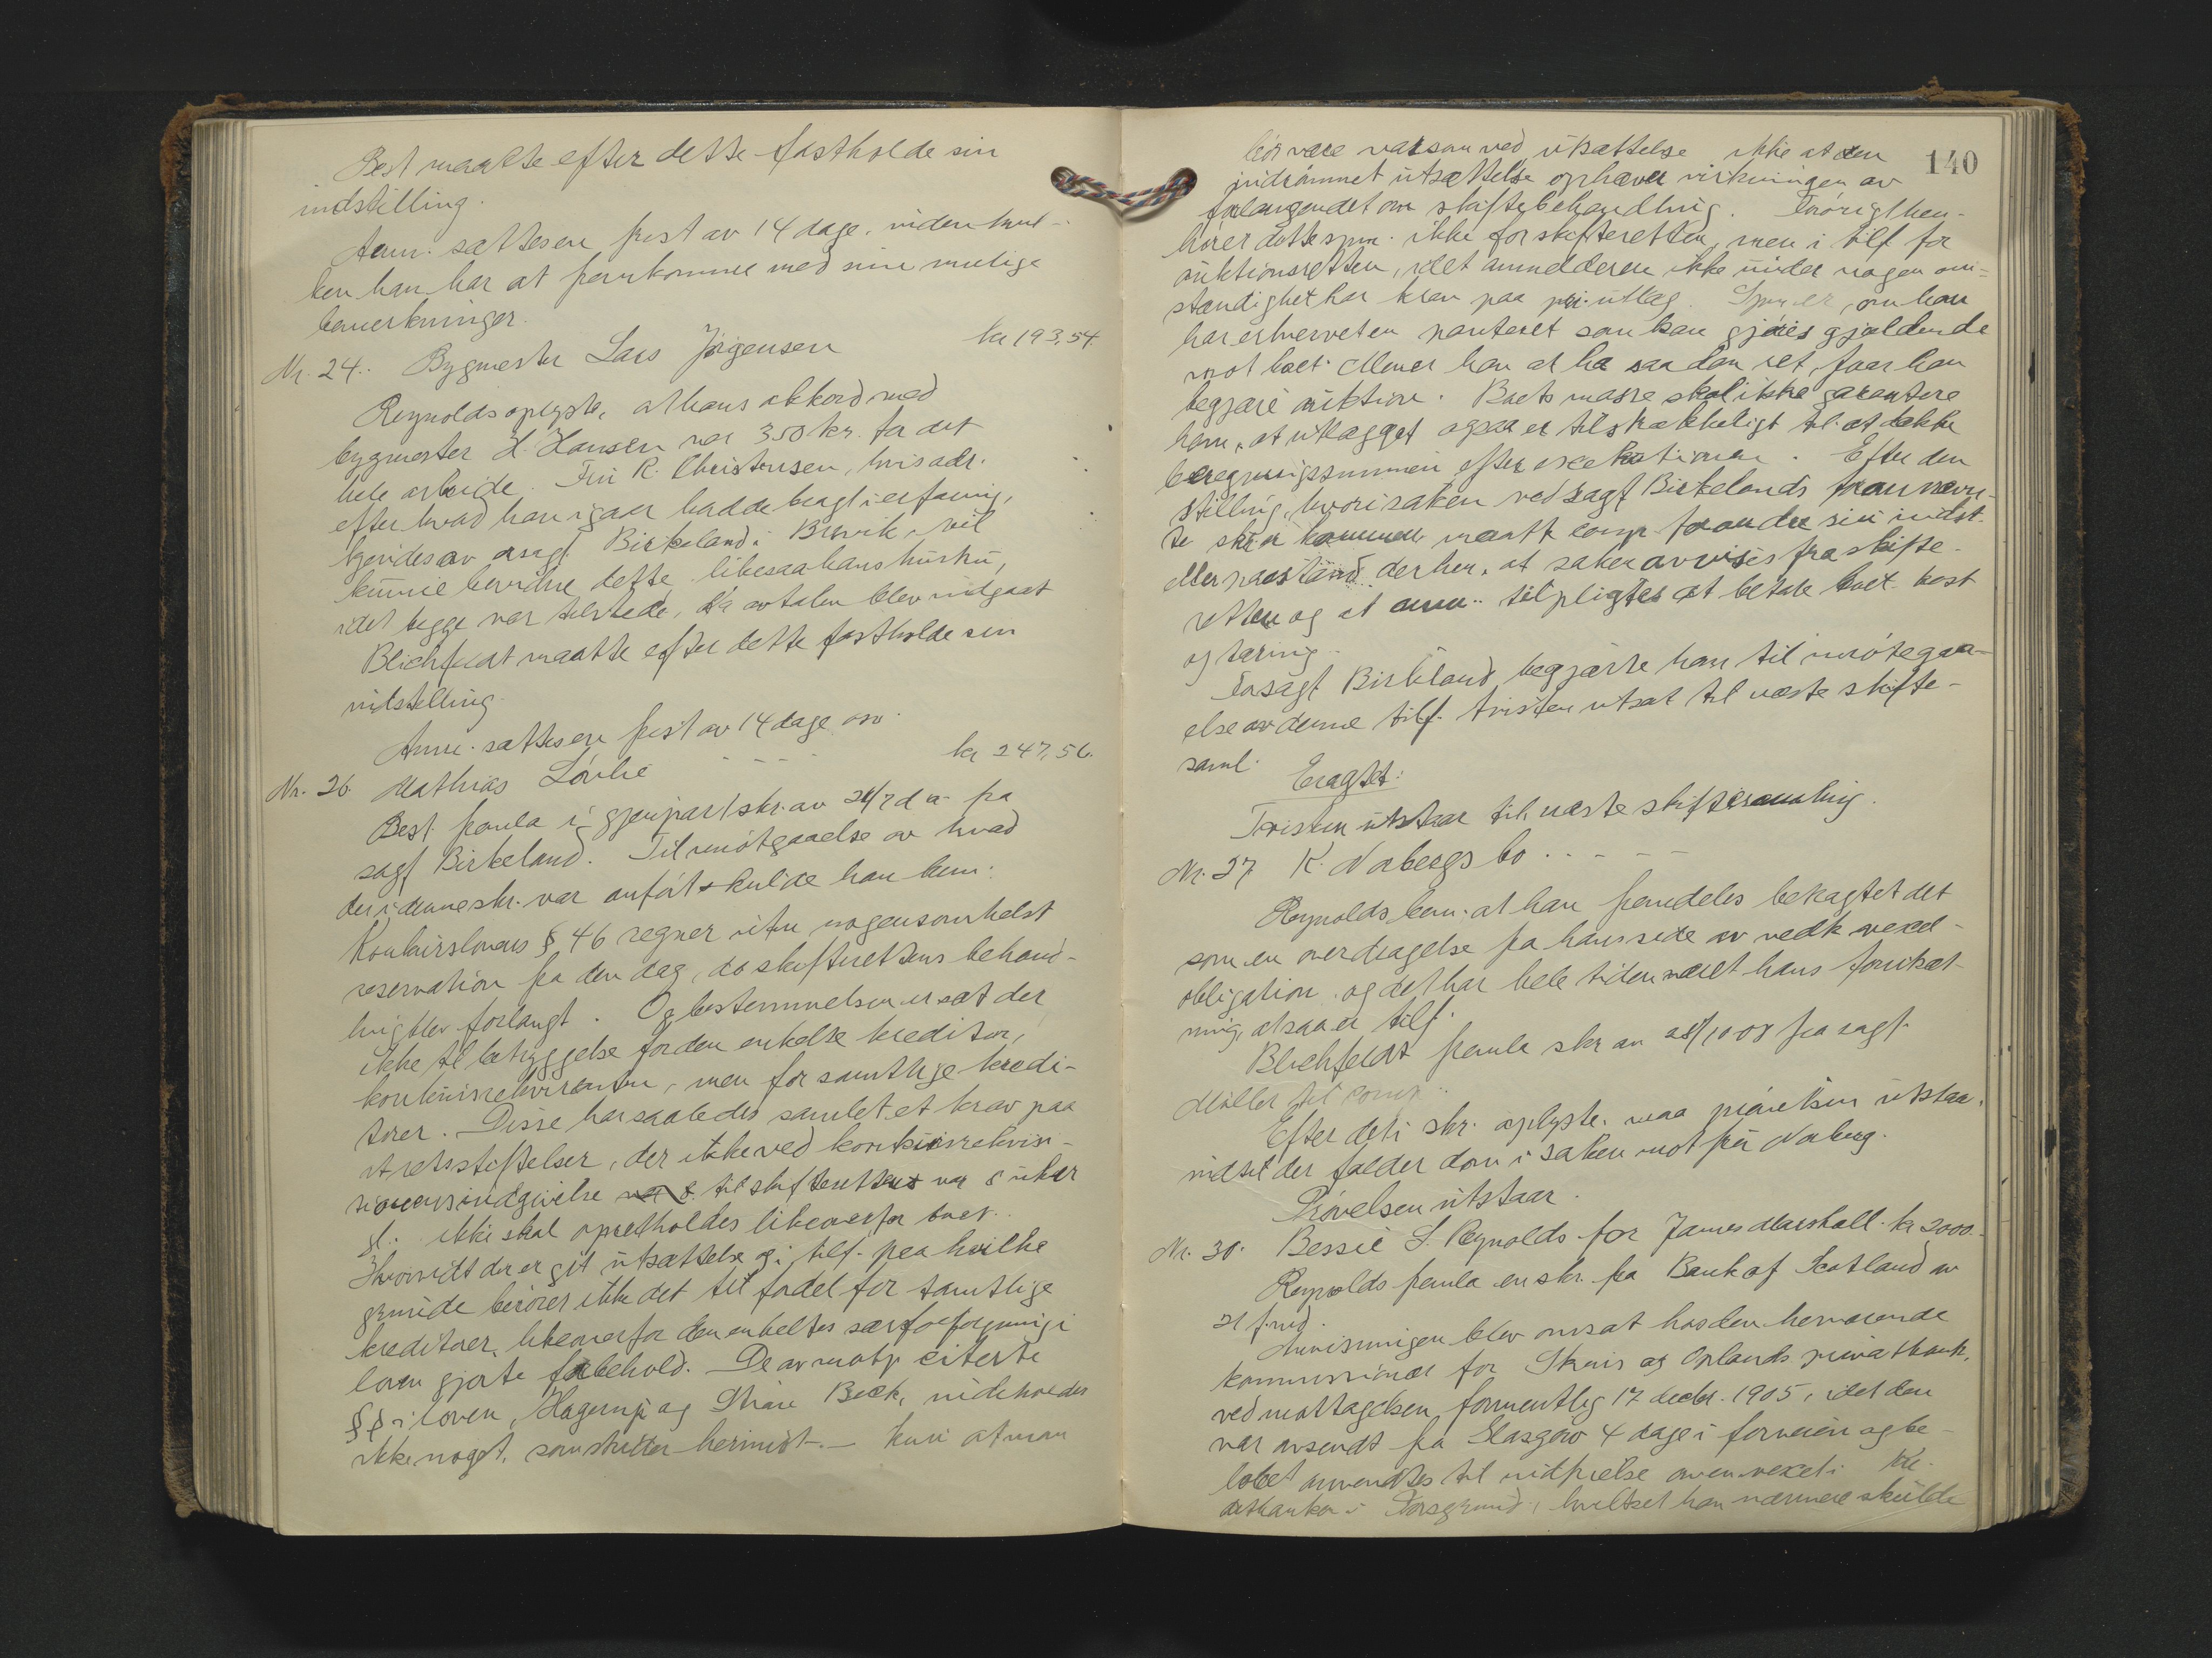 Best maatte efter dette fastholde sin
indstilling.
Anm. sættes en frist av 14 dage, inden hvil-
ken han har at fremkomme med sine mulige
bemerkninger.
Nr. 24. Bygmester Lars Jörgensen kr 193,54.
Reynolds oplyste, at hans akkord med
bygmester H. Hansen var 350 kr. for det
hele arbeide. Fru K. Christensen, hvis adr.
efter hvad han igaar hadde bragt i erfaring,
kjendes av osagf Birkeland i Brevik, vil
kunne bevidne dette likesaa hans hustru,
idet begge var tilstede, da avtalen blev indgaat
Blichfeldt maatte efter dette fastholde sin
indstilling.
Anm. sættes en frist av 14 dage osv.
Nr. 26. Mathias Lövlie - - - - kr 247,56.
Best. fremla i gjenpart skr. av 24/7 d a fra
sagf Birkeland. Til imötgaaelse av hvad
der i denne skr. var anfört skulde han bem:
Konkurslovens § 46 regner uten nogensomhelst
reservation fra den dag, da skifterettens behand-
ling blev forlangt. Og bestemmelsen er sat der
ikke til betryggelse for den enkelte kreditor,
konkursrekvirenten, men for samtlige kredi-
torer. Disse har saaledes samlet et krav paa
at retsstiftelser, der ikke ved konkursrekvisi-
tionens indgivelse til skifteretten var 8 uker
gl. ikke skal opretholdes likeoverfor boet.
Hvorvidt der er git utsættelse og i tilf. paa hvilke
grunde berörer ikke det til fordel for samtlige
kreditorer likeoverfor den enkeltes særforfölgning i
loven gjorte forbehold. De av motp. citerte
§§ i loven, Hagerup og Skare Beck, indeholder
ikke noget, som strider herimot. - Kun at man
140
bör være varsom ved utsættelse ikke at den
indrömmet utsættelse ophæver virkningen av
forlangendet om skiftebehandling. Forövrigt hen-
hörer dette spm. ikke for skifteretten, men i tilf for
auktionsretten, idet anmelderen ikke under nogen om-
stændighet har krav paa pri. utlæg. Spm er, om han
har erhvervet en panteret som kan gjöres gjældende
mot boet. Mener han at ha saadan ret, faar han
begjære auktion. Boets masse skal ikke garantere
ham, at utlægget ogsaa er tilstrækkeligt til at dække
beregningssummen efter exekutionen. Efter den
stilling, hvori saken ved sagf Birkelands frannævn-
te skr er kommen maatte comp forandre sin indst.
eller paastand derhen, at saken avvises fra skifte-
retten og at anm. tilpligtes at betale boet kost
og tæring.
Fo sagf Birkeland, begjærte han til imötegaa-
else av denne tilf. tvisten utsat til næste skifte-
saml.
Eragtet:
Tvisten utstaar til næste skiftesamling.
Nr. 27. K. Nobergs bo - - - - -
Reynolds bem. at han fremdeles betragtet det
som en overdragelse fra hans side av vedk. vexel-
obligation og det har hele tiden været hans forutsæt-
ning, at saa er tilf.
Blichfeldt fremla skr av 28/10 08 fra sagf.
Möller til comp.
Efter det i skr. oplyste, maa prövelsen utstaa,
indtil der falder dom i saken mot fru Noberg.
Prövelsen utstaar.
Nr. 30. Bessie L. Reynolds for James Marshall. kr 2000.-
Reynolds fremla en skr. fra Bank of Scotland av
21 f. md.
Anvisningen blev omsat hos den herværende
kommissionær for Skiens og Oplands privatbank,
ved mottagelsen formentlig 17 decbr. 1905, idet den
var avsendt fra Glasgow 4 dage i forveien og be-
löbet anvendtes til indfrielse av en vexel i Kre-
ditbanken i Porsgrund, hvilket han nærmere skulde